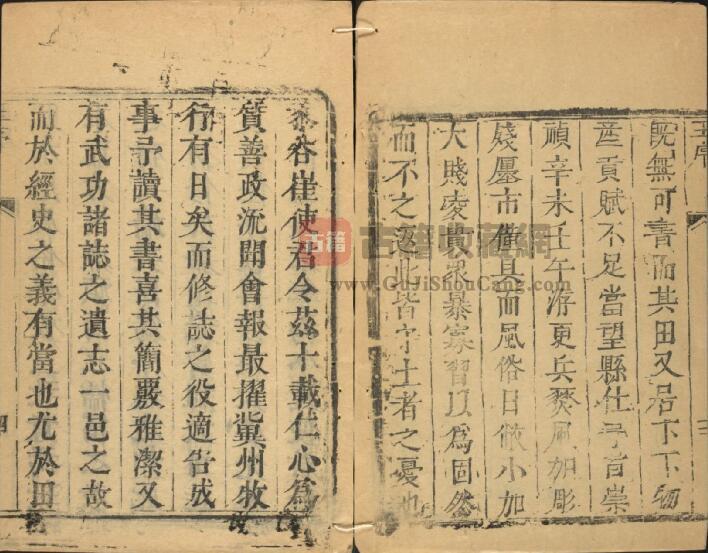 既無可書而其田又居下下物
産貢賦不足當望縣仕予昔崇
禎辛未壬午洊更兵焚風加彫
殘廛市僅具而風俗日敝小加
大賤凌貴衆暴寡習以為固然
而不之返此皆守土者之憂也
崔使君令茲十載仁心為
質善政流聞會報最擢冀州牧
行有日矣而修誌之役適告成
事予讀其書喜其簡覈雅潔又
有武功諸誌之遺志一邑之故
而於經史之義有當也尤於田
古籍
古籍收藏網
www.GuJiShouCang.com